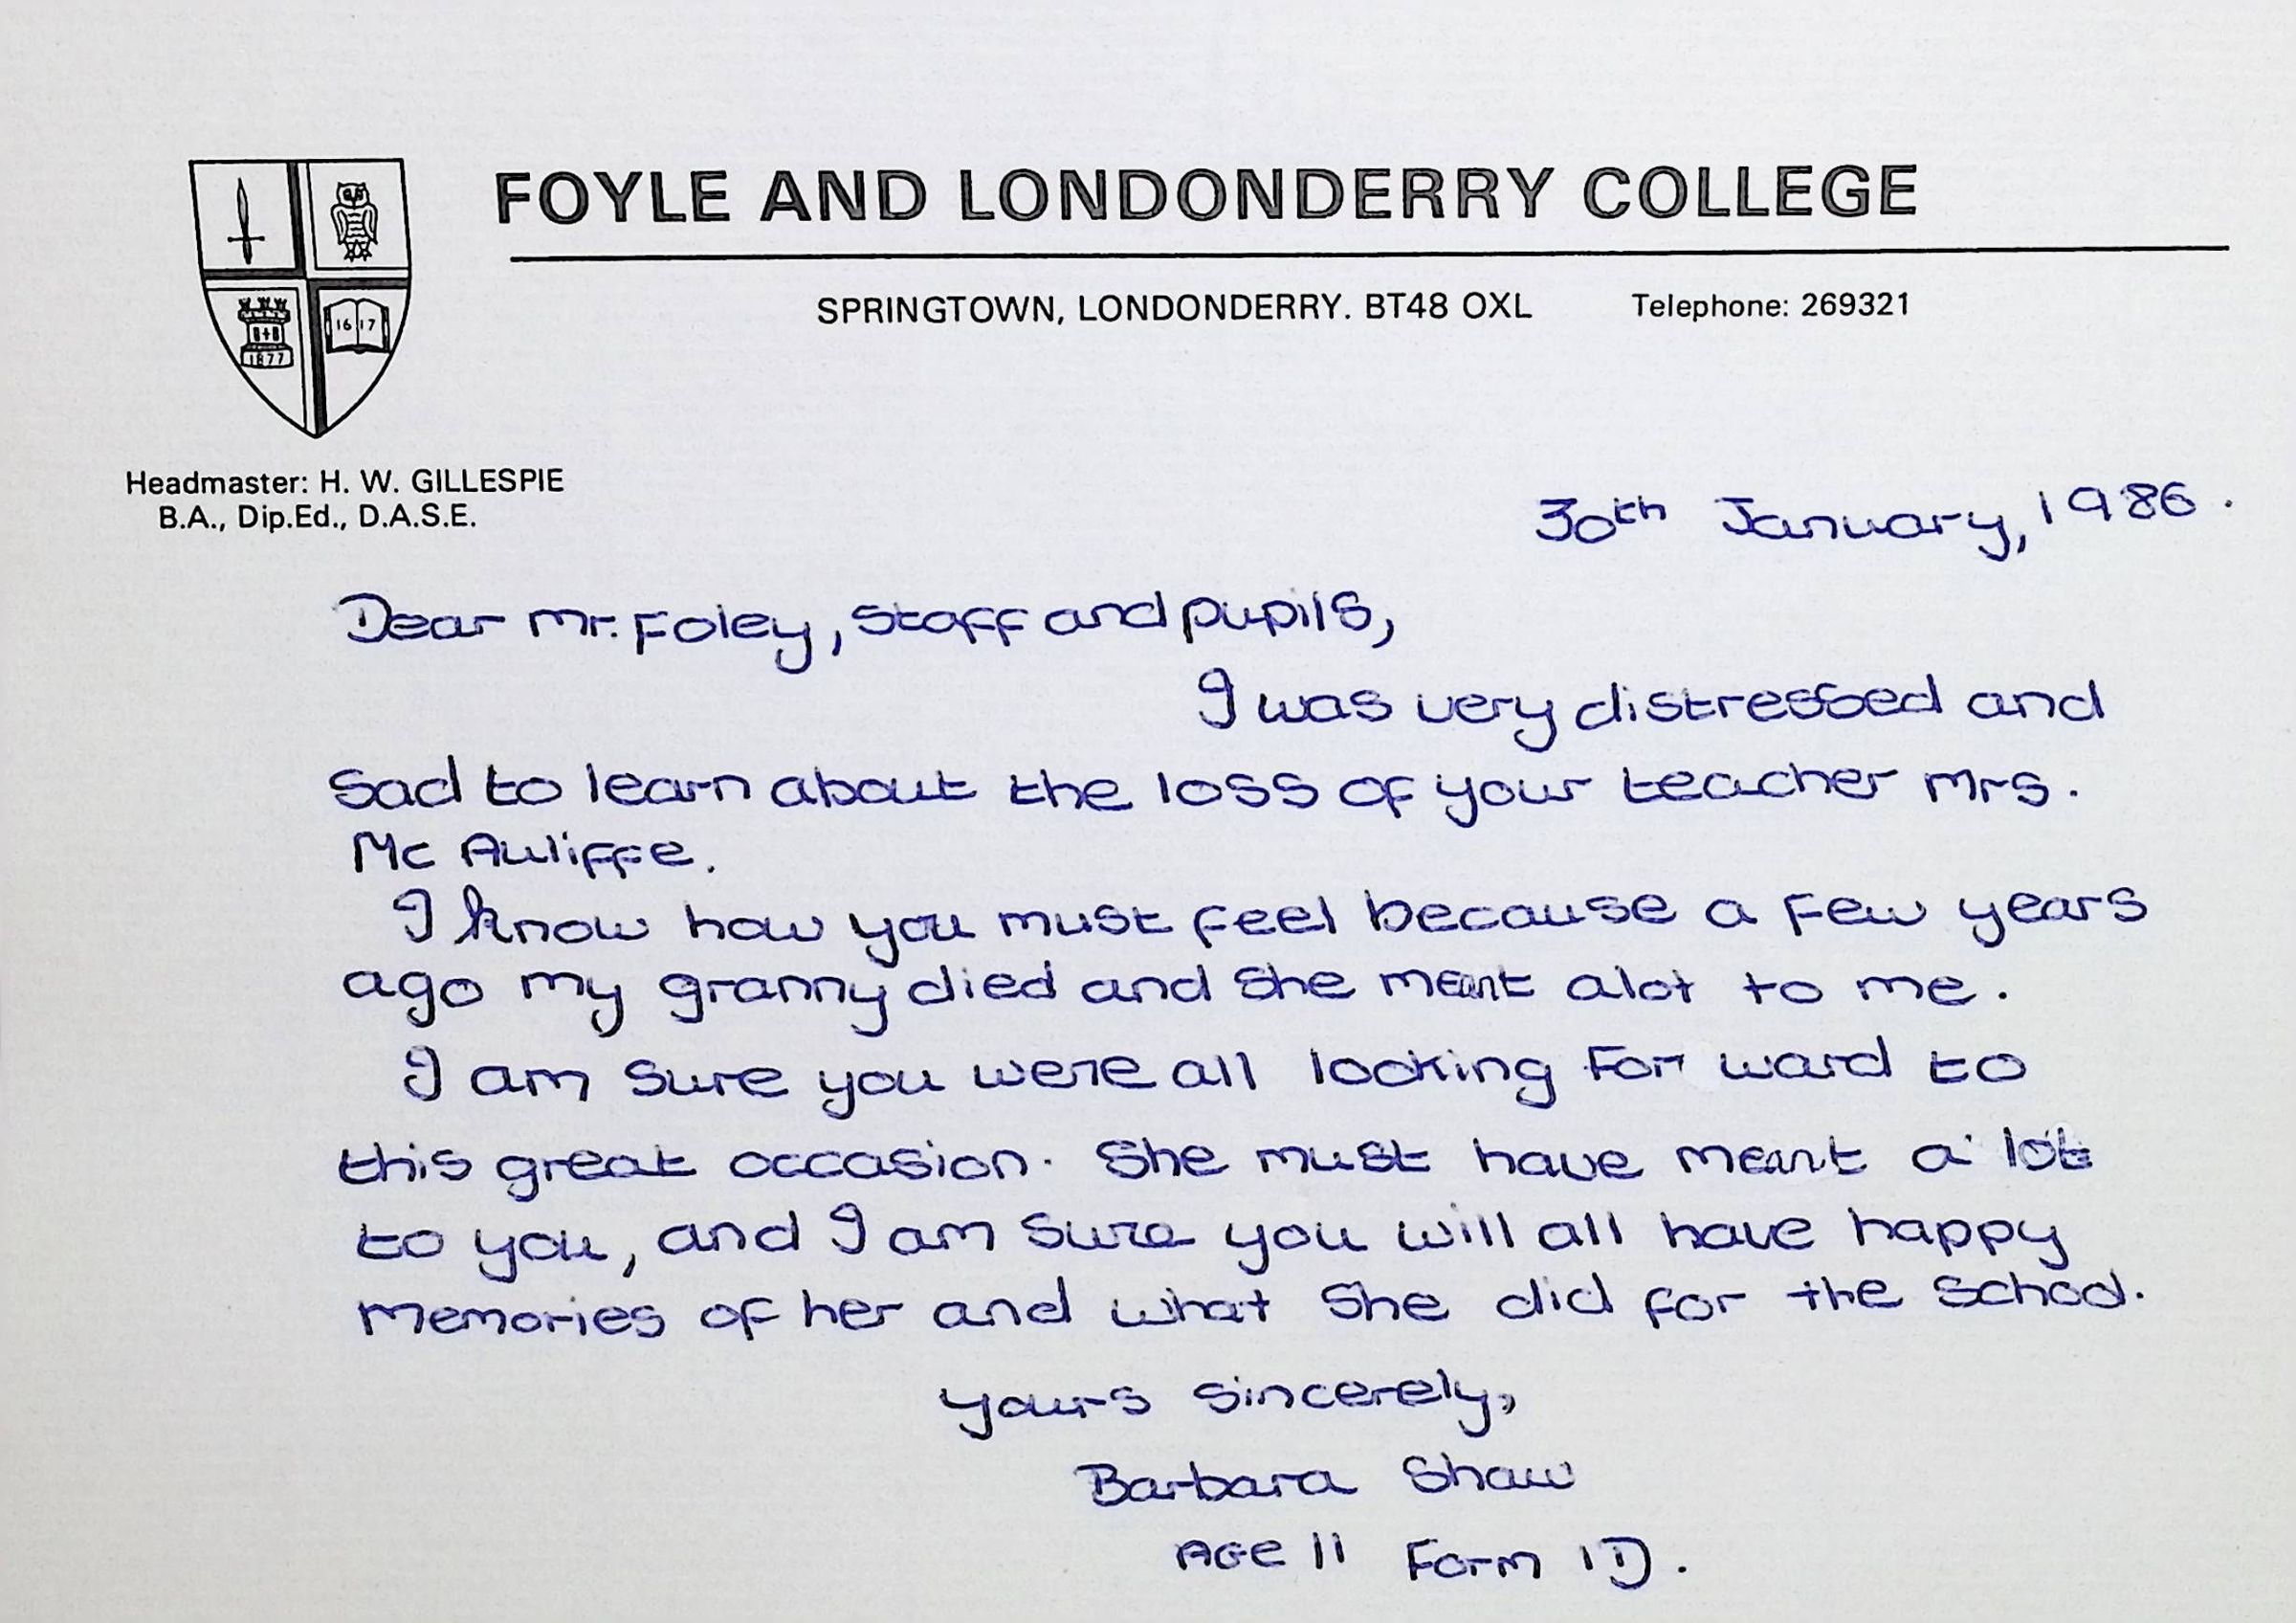 FOYLE AND LONDONDERRY COLLEGE
SPRINGTOWN, LONDONDERRY. BT48 OXL Telephone: 269321
1617
B+B
1877
Headmaster: H. W. GILLESPIE
B.A., Dip.Ed., D.A.S.E.
30th January, 1986.
Dear Mr. Foley, Staff and pupils,
I was very distressed and
sad to learn about the loss of your teacher Mrs.
Mc Auliffe.
I know how you must feel because a few years
ago my granny died and she meant alot to me.
I am sure you were all looking for ward to
this great occasion. She must have meant a lot
to you, and I am sure you will all have happy
memories of her and what she did for the school.
yours sincerely,
Barbara Shaw
Age 11 Form 1D.